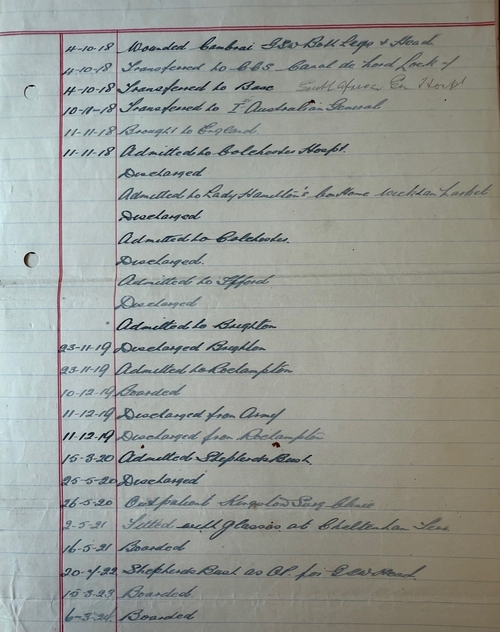 4-10-18 Wounded Cambrai GSW Both Legs & Head
4-10-18 Transferred to CCS Canal de Nord Lock 7
4-10-18 Transferred to Base South African Gn Hospt
10-11-18 Transferred to 1st Australian General
11-11-18 Brought to England
11-11-18 Admitted to Colchester Hospt.
Discharged
Admitted to Lady Hamilton's Con Home Wickham
Discharged
Admitted to Colchester.
Discharged.
Admitted to Ilford
Discharged
Admitted to Brighton
23-11-19 Discharged Brighton
23-11-19 Admitted to Roehampton
10-12-19 Boarded
11-12-19 Discharged from Army
11-12-19 Discharged from Roehampton
15-3-20 Admitted Shepherds Bush
25-5-20 Discharged
26-5-20 Outpatient Kingston Surg Clinic
2-5-21 Fitted with glasses at Cheltenham
16-5-21 Boarded
20-4-22 Shepherds Bush as OP. for GSW Head.
15-3-23 Boarded
6-3-24 Boarded